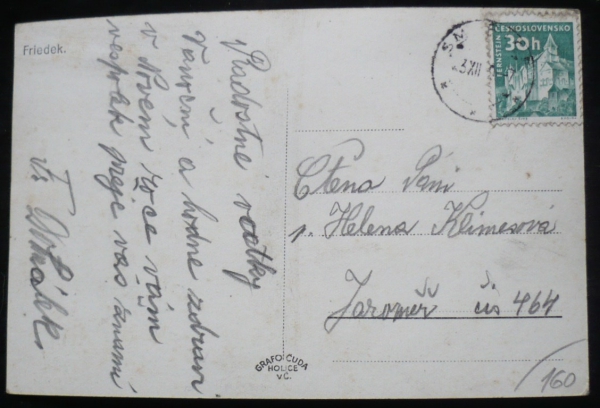 Friedek.
Radostné svátky
Vánoční a hodně zdraví
v Novém roce vám
vespolek přeje váš známí
Fr.
S
3 XII
ČESKOSLOVENSKO
30h
PERNŠTEJN
Ctěná Paní
p. Helena Klimešová
Jaroměř čís 464
GRAFO ČUDA
HOLICE
V.Č.
160